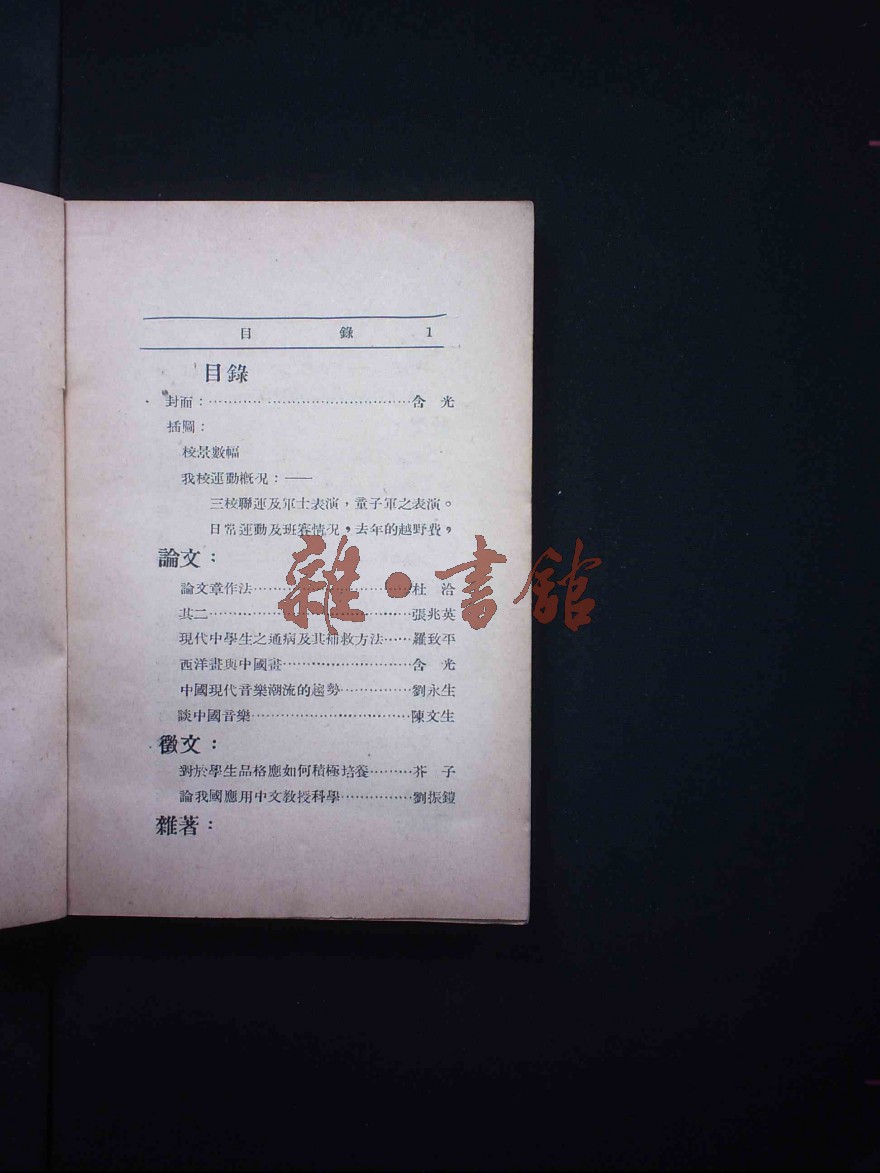 目錄 1
目錄
封面：…………………………………含光
插圖：
校景數幅
我校運動概况：——
三校聯運及軍士表演，童子軍之表演。
日常運動及班賽情况，去年的越野費，
論文：
論文章作法………………………杜洽
其二………………………………張兆英
現代中學生之通病及其補救方法……羅致平
西洋畫與中國畫……………………含光
中國現代音樂潮流的趨勢…………劉永生
談中國音樂…………………………陳文生
徵文：
對於學生品格應如何積極培養………芥子
論我國應用中文教授科學…………劉振鎧
雜著：
雜·書館